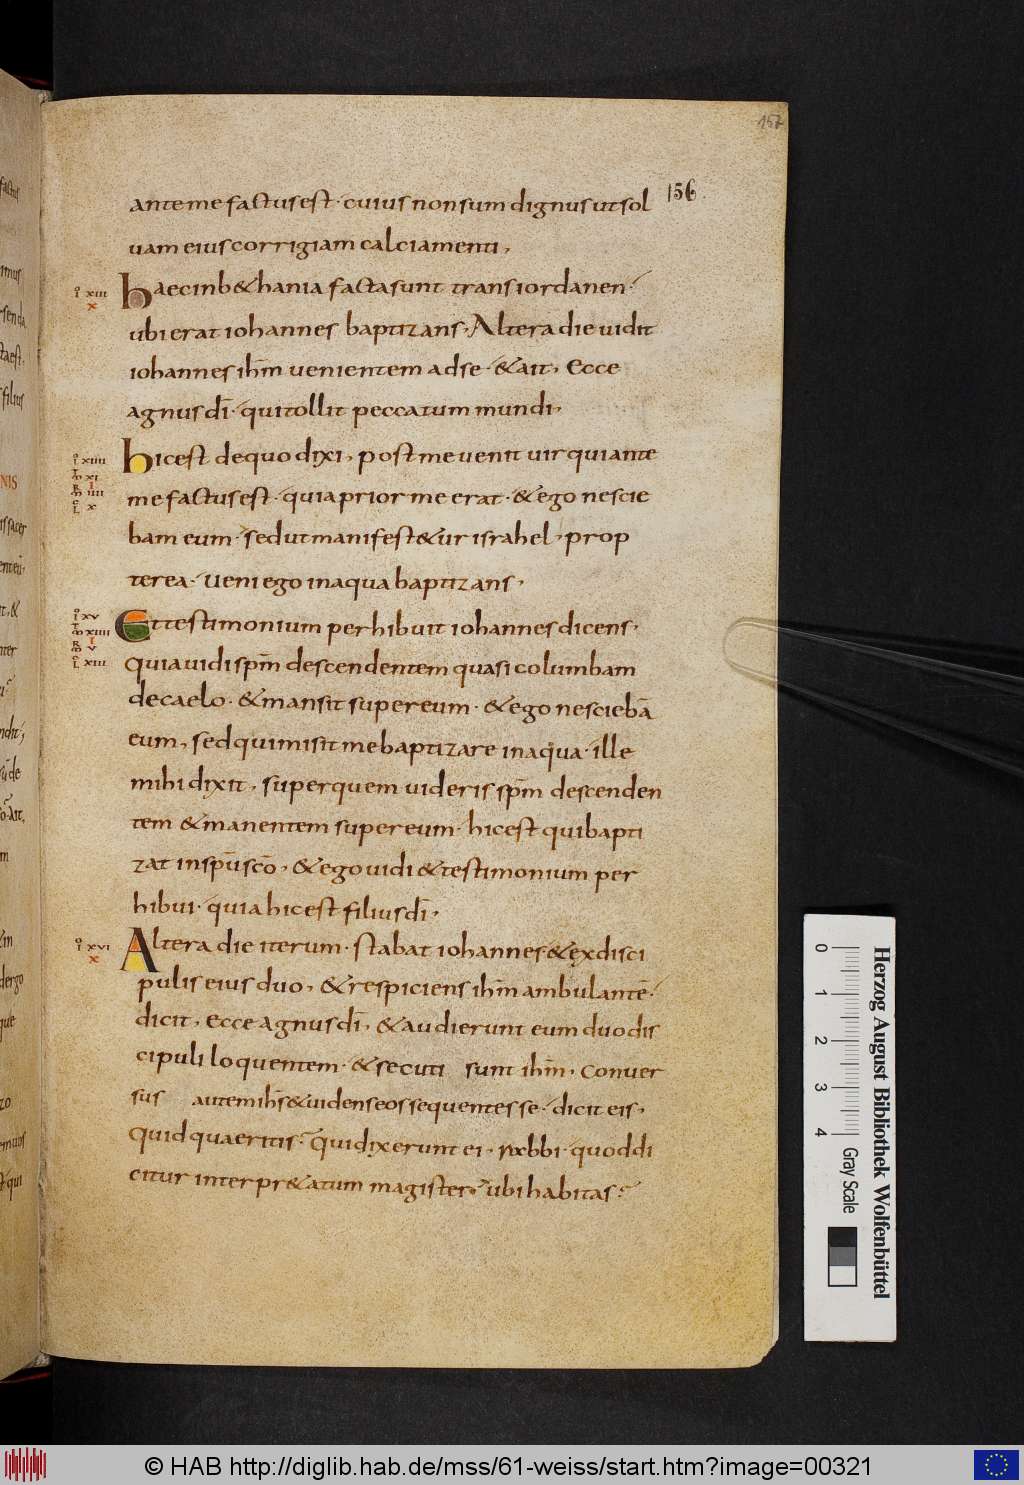 157
156.
ante me factus est· cuius non sum dignus ut sol
uam eius corrigiam calciamenti,
haec in b&hania facta sunt trans iordanen·
ı xııı
x
ubi erat iohannes baptizans, Altera die uidit
iohannes ihm̅ uenientem ad se· &ait, Ecce
agnus di̅· qui tollit peccatum mundi,
hic est de quo dixi, post me uenit uir qui ante
ı xıııı
xı
ıııı
x
me factus est· quia prior me erat· & ego nescie
bam eum· sed ut manifest&ur israhel, prop
terea· ueni ego in aqua baptizans,
Et testimonium perhibuit iohannes dicens,
ı xv
xıııı
v
xııı
quia uidi spm̅ descendentem quasi columbam
de caelo· & mansit super eum· & ego nescieba̅
eum, sed qui misit me baptizare in aqua· ille
mihi dixit, super quem uideris spm̅ descenden
tem & manentem super eum· hic est qui bapti
zat in spu̅ sco̅, & ego uidi & testimonium per
hibui· quia hic est filius di̅,
Altera die iterum· stabat iohannes· & ex disci
ı xvı
x
pulis eius duo, & respiciens ihm̅ ambulante̅·
dicit, Ecce agnus di̅, & audierunt eum duo dis
cipuli loquentem· & secuti sunt ihm̅, Conuer
sus autem ihs̅ & uidens eos sequentes se· dicit eis,
quid quaeritis? qui dixerunt ei, rabbi· quod di
citur interpr&atum magister· ubi habitas?
factus
imus
filius
NIS
0
1
2
3
4
Gray Scale
Herzog August Bibliothek Wolfenbüttel
© HAB http://diglib.hab.de/mss/61-weiss/start.htm?image=00321